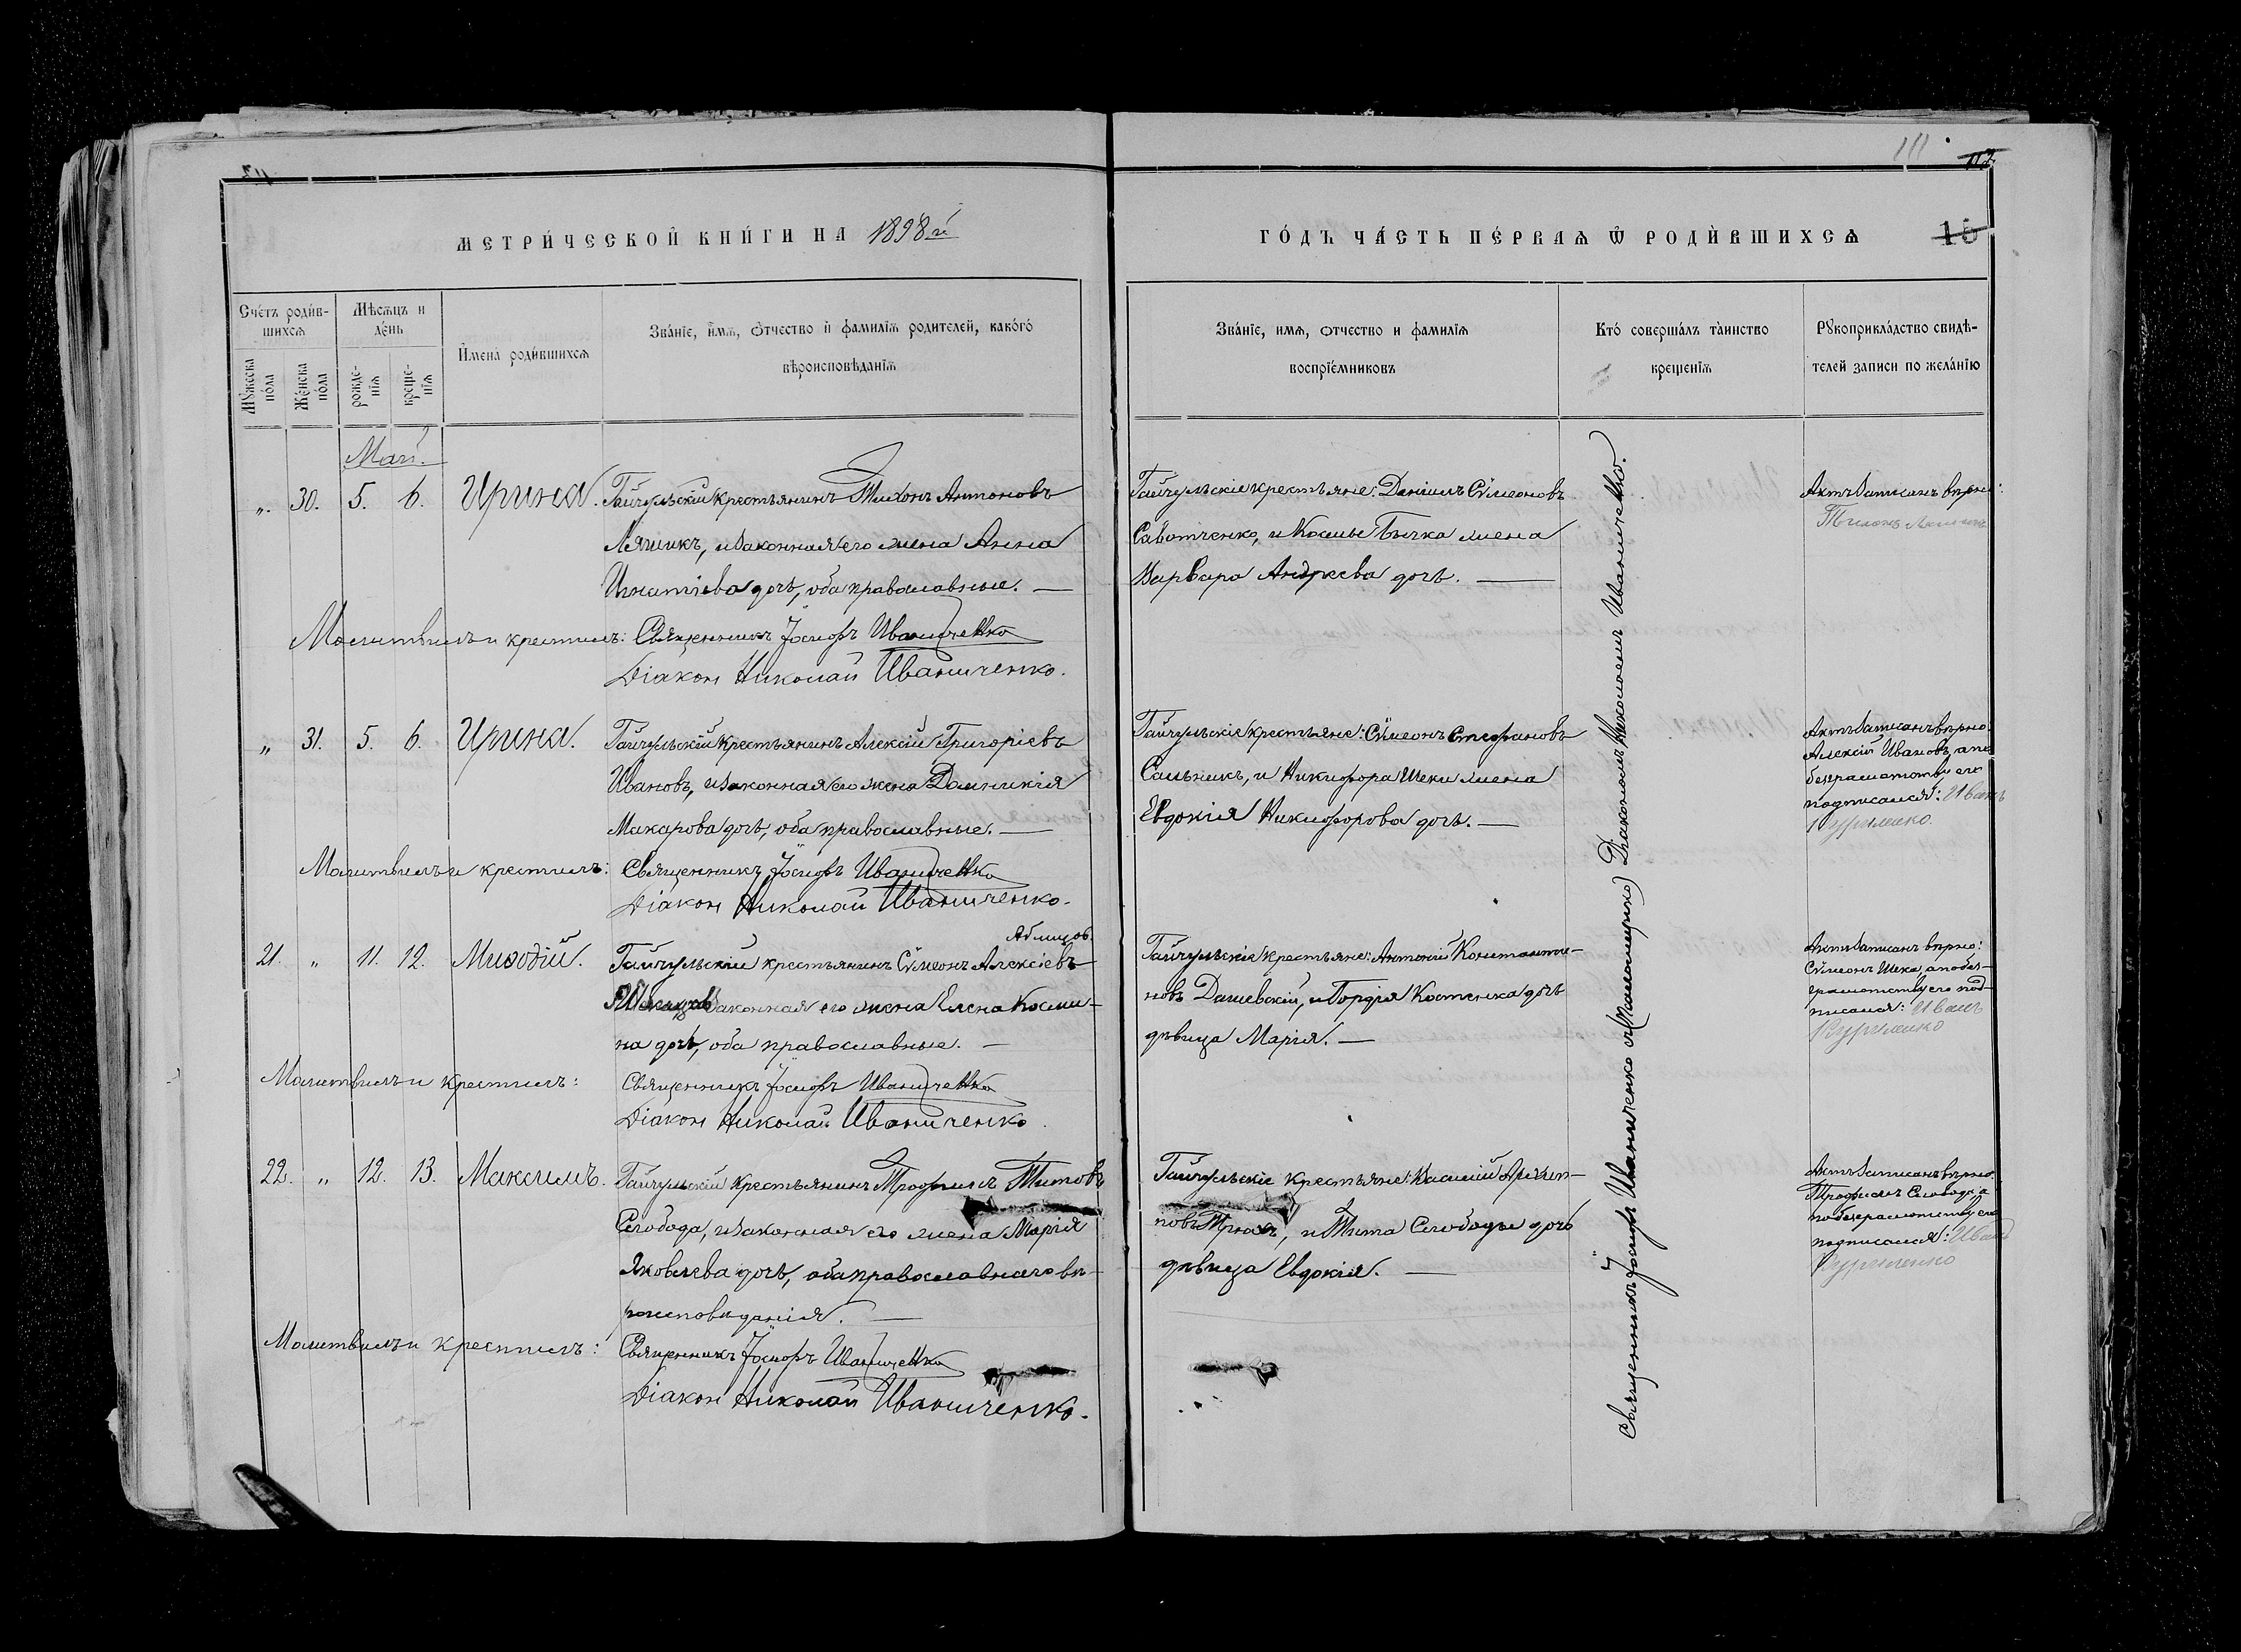 111
112
МЕТРИ́ЧЕСКОЙ КНИ́ГИ НА 1898й
ГО́ДЪ ЧА́СТЬ ПЕ́РВАѦ Ѿ РОДИ́ВШИХСѦ
15
Сче́тъ роди́в-
шихсѧ
Мѣсѧцъ и
де́нь
Мꙋ́жеска
по́ла
Же́нска
по́ла
рожде-
нїѧ
креще-
нїѧ
И҆мена̀ роди́вшихсѧ
Зва́нїе, и҆́мѧ, ѻ҆́тчество и҆ фамилїѧ родителей, како́гѡ
вѣроисповѣданїѧ
Зва́нїе, имѧ, отчество и фамилїѧ
воспрїе́мниковъ
Кто́ соверша́лъ та̀инство
крещенїѧ
Рꙋкоприкла́дство свидѣ-
телей записи по жела́нїю
Май.
„ 30. 5. 6. Ирина. Гайчульскій крестьянинъ Тихонъ Антоновъ
Ляшикъ, и законная его жена Анна
Игнатіева дочь, оба православные. —
Молитвилъ и крестилъ: Священникъ Іосифъ Иваниченко
Діакон Николай Иваниченко.
Гайчульскіе крестьяне: Даніилъ Сѵмеоновъ
Саботченко, и Космы Бычка жена
Варвара Андреева дочь. —
Актъ записанъ вѣрно:
Тихонъ
„ 31. 5. 6. Ирина. Гайчульскій крестьянинъ Алексій Григоріевъ
Ивановъ, и законная его жена Домникія
Макарова дочь, оба православные. —
Молитвилъ и крестилъ: Священникъ Іосифъ Иваниченко
Діакон Николай Иваниченко.
Гайчульскіе крестьяне: Сѵмеонъ Стефановъ
Сальникъ, и Никифора Шеки жена
Евдокія Никифорова дочь. —
Актъ записанъ вѣрно.
Алексій Ивановъ, а по
безграмотству его
подписался: Иванъ
Куриленко.
21. „ 11. 12. Мѳодій. Гайчульскій крестьянинъ Сѵмеонъ Алексіевъ
законная его жена Елена Косми-
на дочь, оба православные. —
Молитвилъ и крестилъ: Священникъ Іосифъ Иваниченко
Діакон Николай Иваниченко.
Гайчульскіе крестьяне: Антоній Константи-
новъ Дашевскій, и Гордія Костенка дочь
дѣвица Марія. —
Актъ записанъ вѣрно:
Сѵмеонъ Шека, а по без-
грамотству его под-
писался: Иванъ
Куриленко
22. „ 12. 13. Максимъ. Гайчульскій крестьянинъ Трофимъ Титовъ
Слобода, и законная его жена Марія
Яковлева дочь, оба православнаго вѣ-
роисповѣданія. —
Молитвилъ и крестилъ: Священникъ Іосифъ Иваниченко
Діакон Николай Иваниченко.
Гайчульскіе крестьяне: Василій Архип-
повъ и Тита Слободы дочь
дѣвица Евдокія. —
Актъ записанъ вѣрно.
Трофимъ Слобода, а
по безграмотству его
подписался: Иванъ
Куриленко
Священникъ Іосифъ Иваниченко съ (псаломщико) Діакономъ Николоемъ Иваниченко.